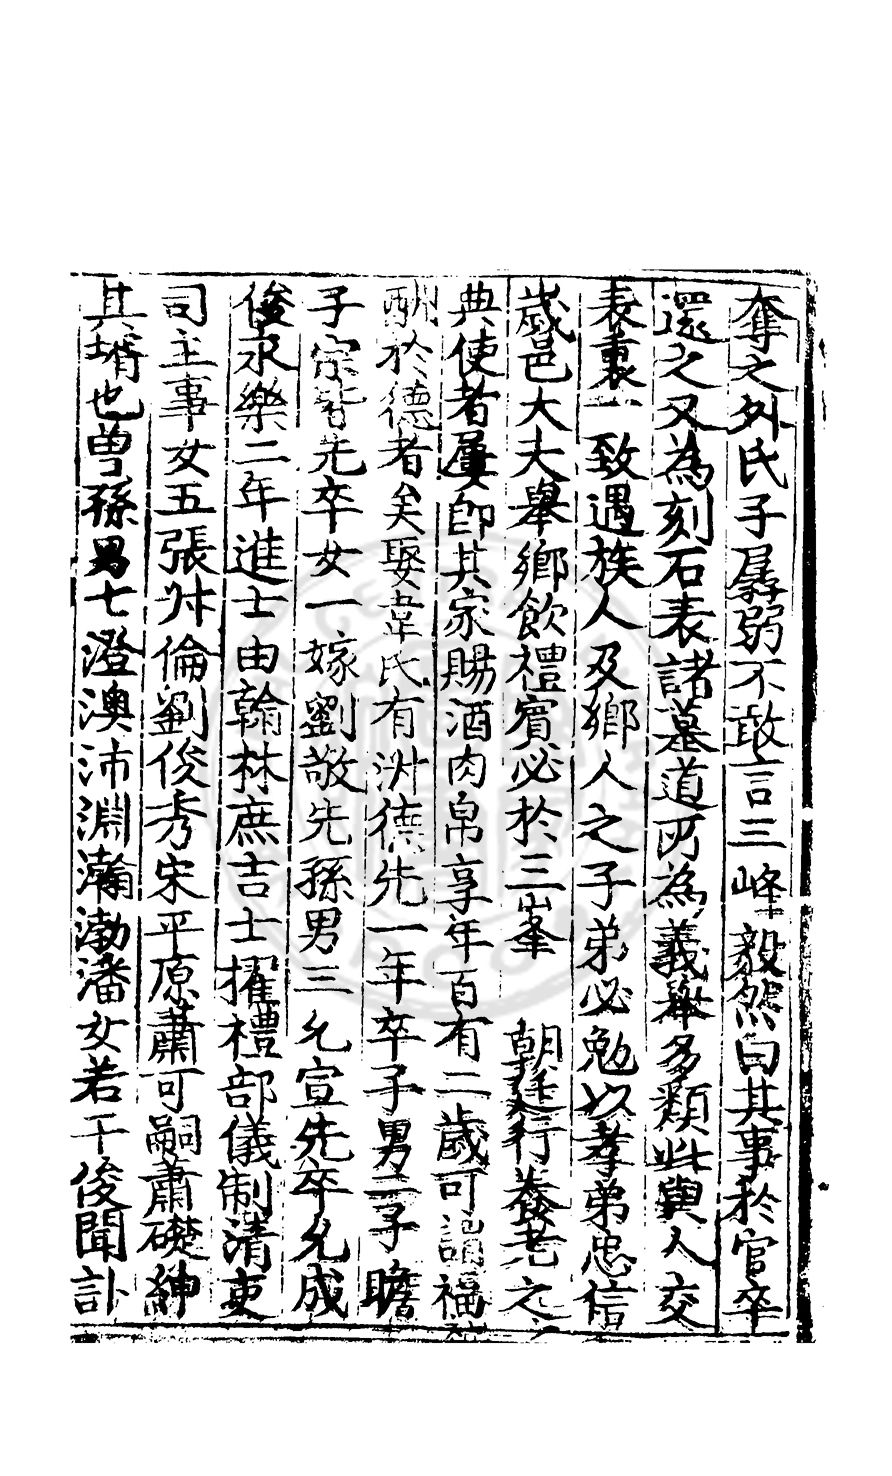 奪之外氏子孱弱不敢言三峰毅然曰其事於官卒
還之又為刻石表諸墓道所為義舉多類此與人交
表裏一致遇族人及鄉人之子弟必勉以孝弟忠信
歲邑大夫舉鄉飲禮賓必於三峯 朝廷行養老之
典使者屢即其家賜酒肉帛享年百有二歲可謂福
酬於德者矣娶韋氏有淋德先一年卒子男二子瞻
子宗皆先卒女一嫁劉敬先孫男三允宣先卒允成
俊永樂二年進士由翰林庶吉士擢禮部儀制清吏
司主事女五張州倫劉俊秀宋平原蕭可嗣蕭礎紳
其壻也曽孫男七澄澳沛淵瀚渤潘女若干俊聞訃